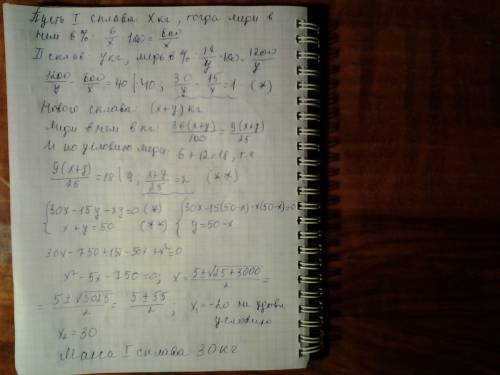 Пусть I сплава x кг, тогда меди в
нем в % 6/x · 100 = 600/x
II сплав y кг, медь в % 12/y · 100 = 1200/y
1200/y - 600/x = 40 |:40; 30/y - 15/x = 1 (*)
Нового сплава (x+y) кг
Меди в нем в кг: 36(x+y)/100 = 9(x+y)/25
И по условию меди: 6+12=18, т.е
9(x+y)/25 = 18 |:9, x+y/25 = 2 (**)
{30x-15y-xy=0 (*) {30x-15(50-x)-x(50-x)=0
x+y=50 (**) y=50-x
30x-750+15x-50x+x²=0
x²-5x-750=0; x = 5±√25+3000/2 =
= 5±√3025/2 = 5±55/2, x₁=-20 не удовл
условию
x₂=30
Масса I сплава 30 кг